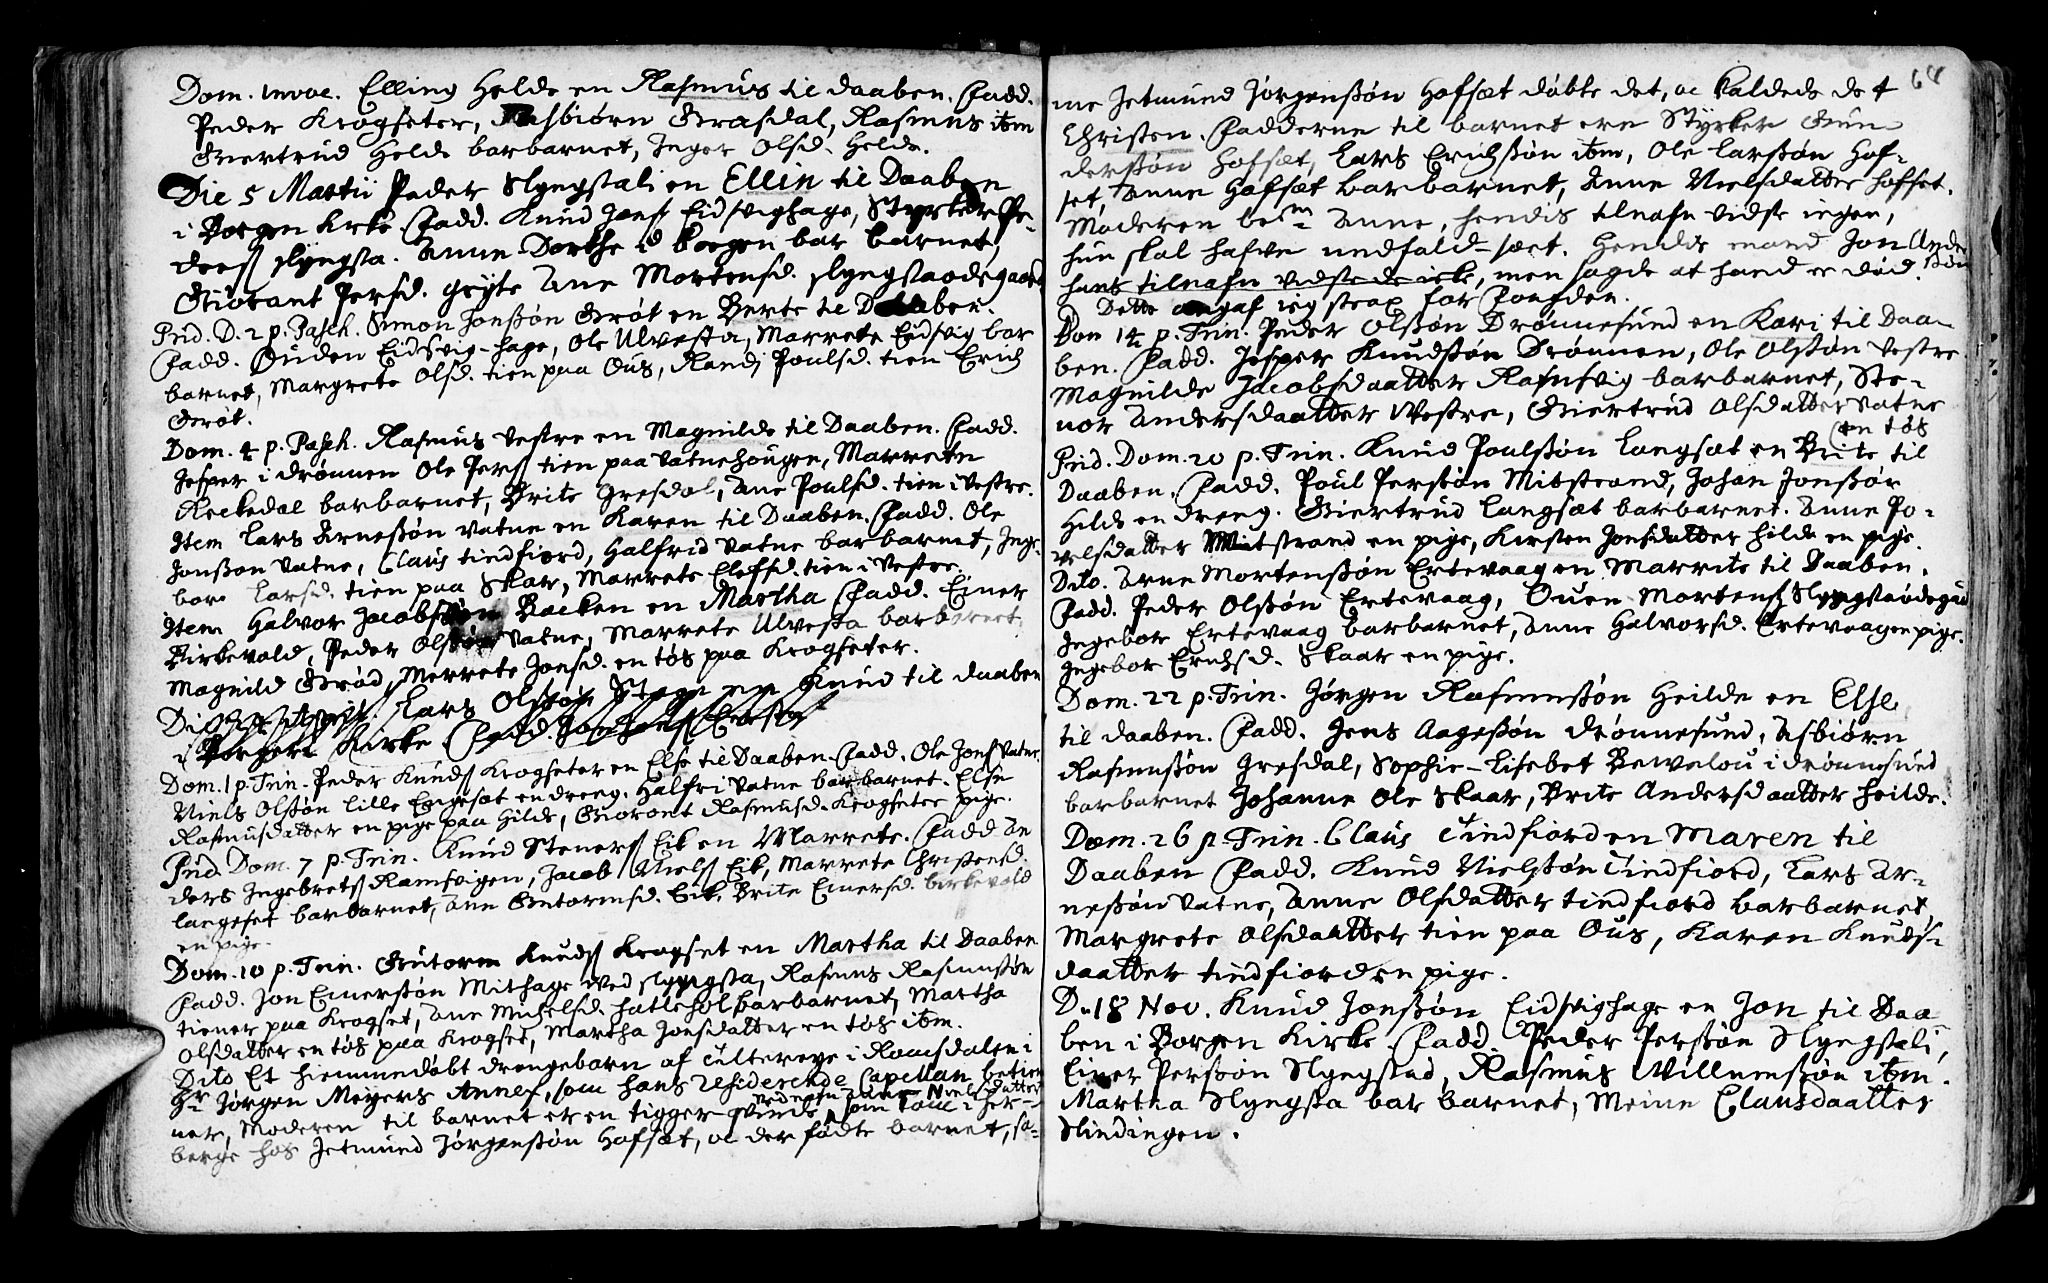 Dom. invoc. Elling Helde en Rasmus til daaben. Fadd.
Peder Krogseter, Asbiørn Grasdal, Rasmus itm
Giertrud Helde barbarnet, Inger Olsd. Helde.
Die 5 Martii Peder Slyngstali en Ellin til Daaben
i Borgen Kirke Fadd. Knud Jonss Eidsvighage, Styrker Pe-
derss slyngsta. Anne Dorthe i borgen bar barnet,
Giorant Persd. gryte Ane Mortensd. slyngstaadegaard
Prid. D. 2 p. Pasch. Simon Jonssøn Grøt en Berte til Daaben.
Fadd. Ouden Eidsvig-hage, Ole Ulvesta, Marrete Eidsvig bar
barnet, Margrete Olsd. tien paa Ous, Randj Poulsd. tien Erich
Grøt.
Dom. 4 p. Pasch. Rasmus Vestre en Magnilde til Daaben. Fadd.
Jesper i drønnen Ole Perss tien paa Vatnehougen, Marrete
Reckedal barbarnet, Brite Gresdal, Ane Poulsd. tien i Vestre.
Item Lars Arnessøn Vatne en Karen til Daaben. Fadd. Ole
Jonssøn Vatne, Claus tindfiord, Halfrid Vatne bar barnet, Inge-
bor Larsd. tien paa Skar, Marrete Elefsd. tien i Vestre.
Item Halvor Jacobssøn Backen en Martha Fadd. Einer
Birkevold, Peder Olssøn Vatne, Marrete Ulvesta barbarnet,
Magnild Grød, Merrete Jonsd. en tøs paa Krogseter.
Die Lars Olssøn en Knud til daaben
i Borgen Kirke Fadd.
Dom. 1 p. Trin. Peder Knudss Krogseter en Else til Daaben. Fadd. Ole Jonss Vatne.
Niels Olssøn lille Engeset en dreng. Halfri Vatne bar barnet. Else
Rasmusdatter en pige paa Hilde, Gioront Rasmusd. Krogseter pige.
Prid. Dom. 7 p. Trin. Knud Stenerss Eik en Marrete. Fadd An
ders Ingebretss Ramsvigen, Jacob Nielss Eik, Marrete Christensd.
langeset barbarnet, Ane Gutormsd. Eik, Brite Einersd. birkevold
en pige.
Dom. 10 p. Trin. Gutorm Knudss Krogset en Martha til Daaben
Fadd. Jon Einerssøn Mithage ved slyngsta, Rasmus Rasmussøn
tiener paa Krogset, Ane Michelsd. hatlehol barbarnet, Martha
Olsdatter en tøs paa Krogset, Martha Jonsdatter en tøs itm.
Dito Et hiemmedøbt drengebarn af ultereye i Romsdalen i
Hr Jørgen Meyers Annex, som hans residerende Capellan betien
ner, Moderen til barnet er en tigger qvinde Anne Nielsdatter som kom i her-
berge hos Jetmund Jørgenssøn Hofsæt, oc der fødte barnet, sa-
68
me Jetmund Jørgenssøn Hofsæt døbte det, oc kaldede det
Christen. Fadderne til barnet ere Styrker Gun-
derssøn hofset, Lars Erichssøn itm, Ole Larssøn Hof-
set, Anne Hofsæt barbarnet, Anne Nielsdatter hofset.
Moderen bem Anne, hendis tilnafn vidste ingen,
hun skal hafve undfald-sæet. Hendis mand Jon Anders søn
hans tilnafn vidstede icke, men sagde at hand er død.
Dette angaf ieg strax for Fogden.
Dom 14 p. Trin. Peder Olssøn Drønnesund en Kari til Daa-
ben. Fadd. Jesper Knudssøn Drønnen, Ole Olssøn Vestre.
Magnilde Jacobsdaatter Rafnsvig barbarnet, Ste-
nor Andersdaatter Westre, Giertrud Olsdatter Vatne
en tøs
Prid. Dom. 20 p. Trin. Knud Poulssøn Langset en Brite til
Daaben. Fadd. Poul Perssøn Mitstrand, Johan Jonssøn
Hilde en dreng. Giertrud Langset barbarnet. Anne Po-
velsdatter Mitstrand en pige, Kirsten Jonsdatter hilde en pige.
Dito. Arne Mortenssøn Ertevaag en Marrite til Daaben.
Fadd. Peder Olssøn Ertevaag, Ouen Mortenss Slyngstaadegaa
Ingebor Ertevaag barbarnet, Anne Halvorsd. Ertevaag en pige.
Ingebor Erichsd. Skaar en pige.
Dom. 22 p. Trin. Jørgen Rasmussøn Heilde en Else
til daaben. Fadd. Jens Aagessøn drønnesund, Asbiørn
Rasmussøn Gresdal, Sophie-Lisebet Bewelou i drønnesund
barbarnet Johanne Ole Skaar, Brite Andersdaatter Heilde.
Dom. 26 p. Trin. Claus Tindfiord en Maren til
Daaben Fadd. Knud Nielssøn Tindfiord, Lars Ar-
nessøn Vatne, Anne Olsdatter tindfiord barbarnet,
Margrete Olsdaatter tien paa Ous, Karen Knuds-
daatter tindfiord en pige.
D. 18 Nov. Knud Jonssøn Eidsvighage en Jon til Daa-
ben i Borgen Kirke. Fadd. Peder Perssøn Slyngstali,
Einer Perssøn Slyngstad, Rasmus Willumssøn itm.
Martha Slyngsta bar barnet, Meine Clausdaatter
Slindingen.